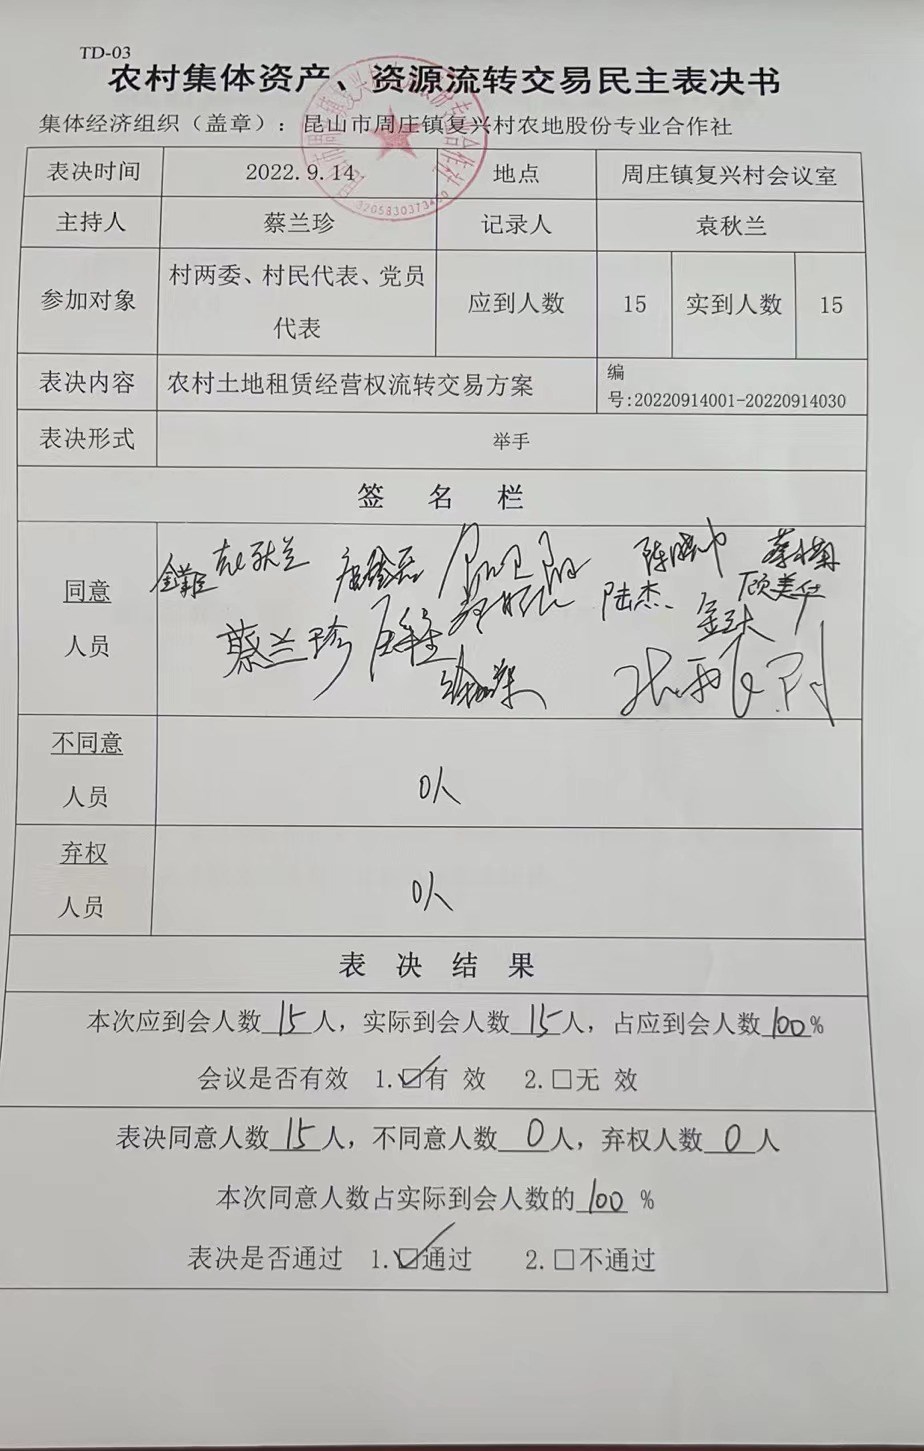 TD-03
农村集体资产、资源流转交易民主表决书
集体经济组织（盖章）：昆山市周庄镇复兴村农地股份专业合作社
表决时间 2022.9.14 地点 周庄镇复兴村会议室
主持人 蔡兰珍 记录人 袁秋兰
参加对象 村两委、村民代表、党员
代表 应到人数 15 实到人数 15
表决内容 农村土地租赁经营权流转交易方案 编
号:20220914001-20220914030
表决形式 举手
签 名 栏
同意
人员
袁秋兰
陆杰 顾美华
蔡兰珍
不同意
人员 0人
弃权
人员 0人
表 决 结 果
本次应到会人数15人，实际到会人数15人，占应到会人数100%
会议是否有效 1.☑有 效 2.□无 效
表决同意人数15人，不同意人数0人，弃权人数0人
本次同意人数占实际到会人数的100 %
表决是否通过 1.☑通过 2.□不通过